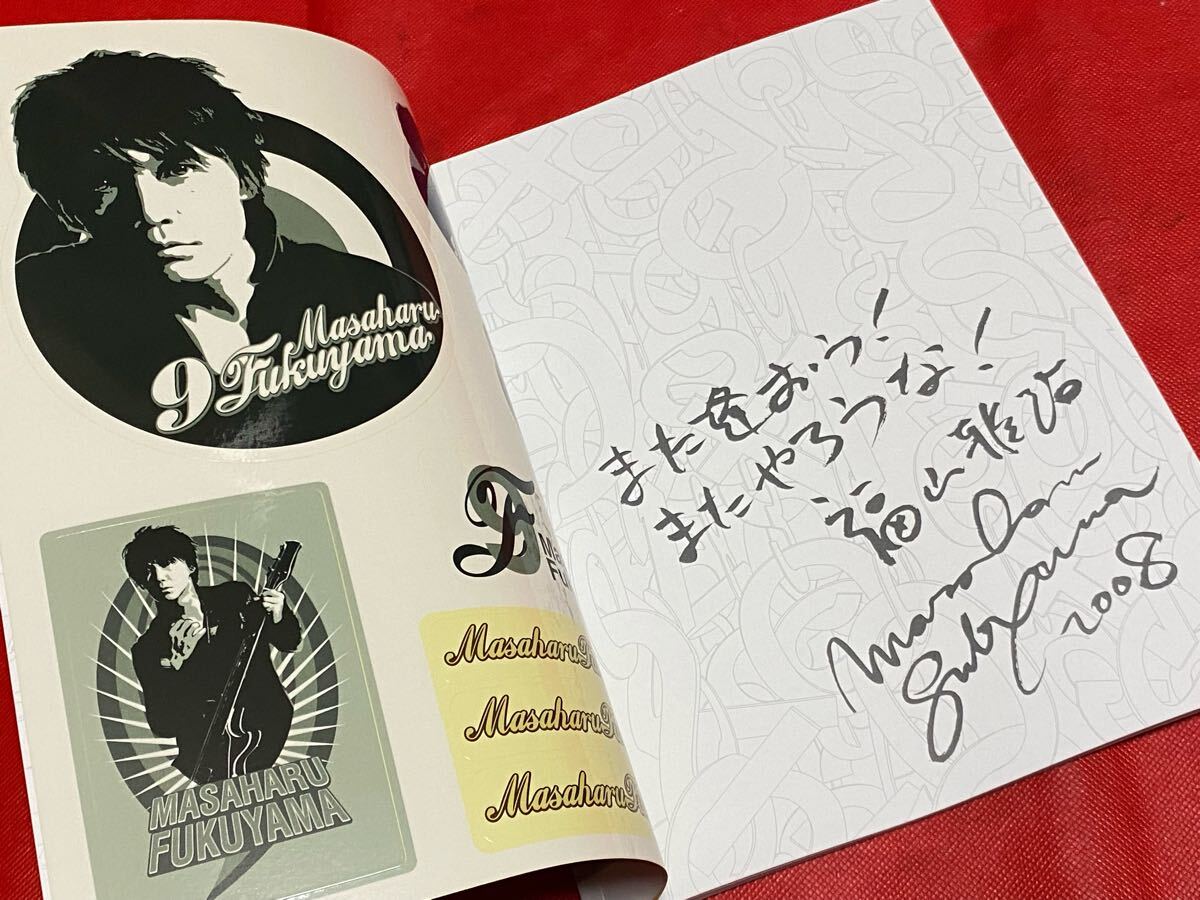 Masaharu
Fukuyama
MASAHARU
FUKUYAMA
F
Masaharu
Masaharu
Masaharu
また逢おう!
またやろうな!
福山雅治
Masaharu
Fukuyama
2008